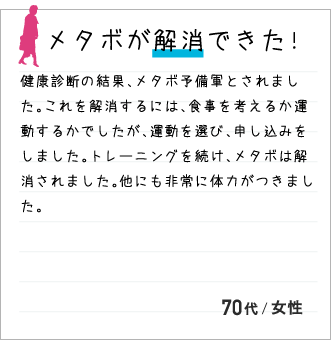 メタボが解消できた!
健康診断の結果、メタボ予備軍とされまし
た。これを解消するには、食事を考えるか運
動するかでしたが、運動を選び、申し込みを
しました。トレーニングを続け、メタボは解
消されました。他にも非常に体力がつきまし
た。
70代 / 女性